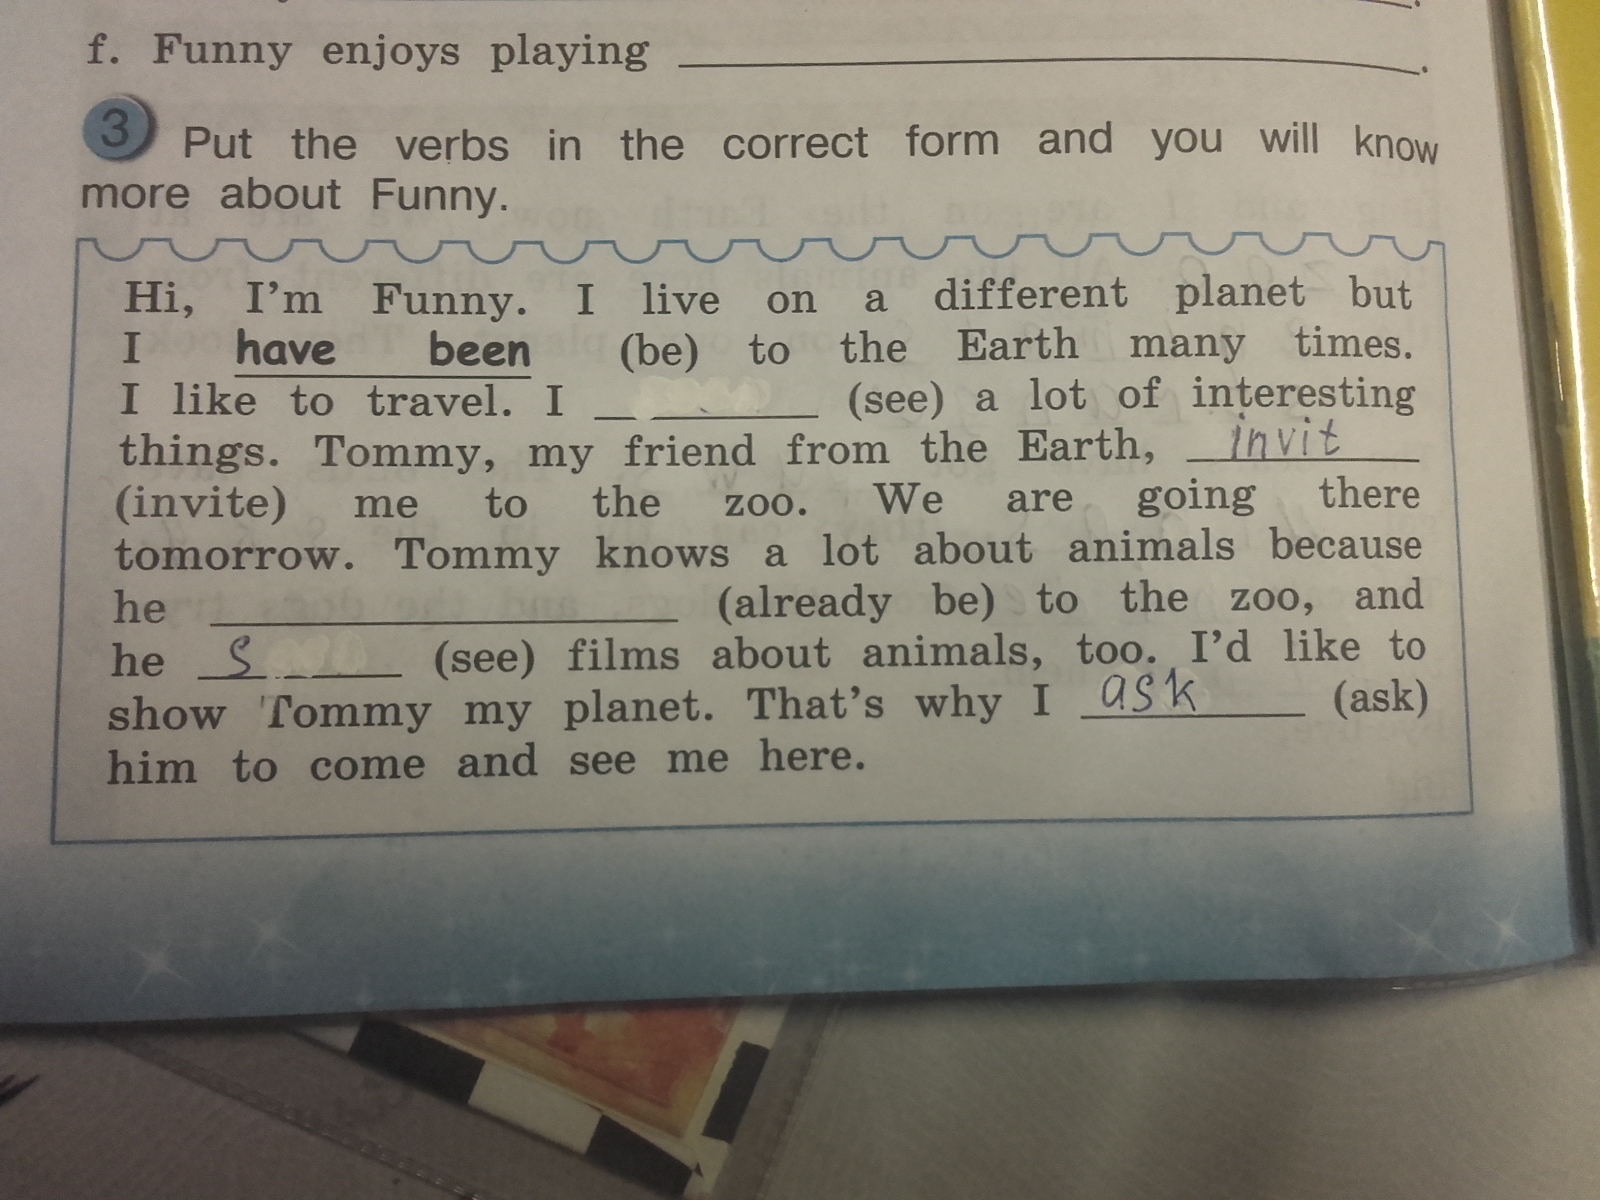 f. Funny enjoys playing ____________.
3 Put the verbs in the correct form and you will know
more about Funny.
Hi, I'm Funny. I live on a different planet but
I have been (be) to the Earth many times.
I like to travel. I ________ (see) a lot of interesting
things. Tommy, my friend from the Earth, invit
(invite) me to the zoo. We are going there
tomorrow. Tommy knows a lot about animals because
he ____________ (already be) to the zoo, and
he S______ (see) films about animals, too. I'd like to
show Tommy my planet. That's why I ask (ask)
him to come and see me here.